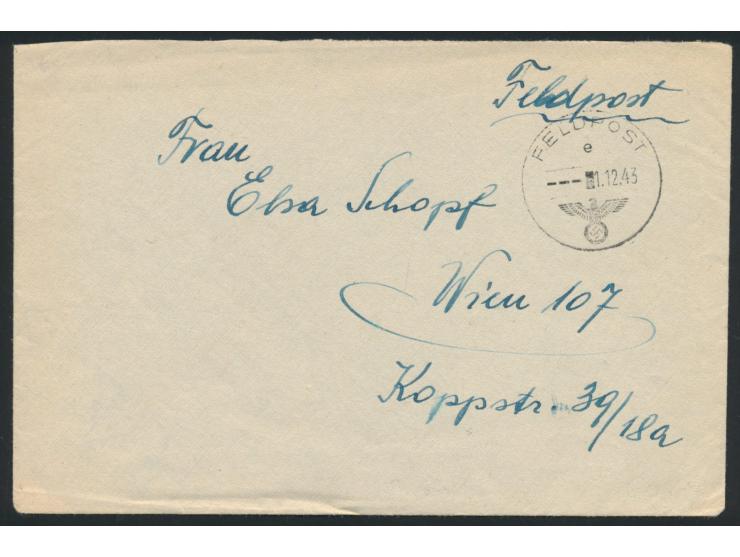 Feldpost
FELDPOST
e
--- 1.12.43
a
Frau
Elsa Schopf
Wien 107
Koppstr. 39/18a